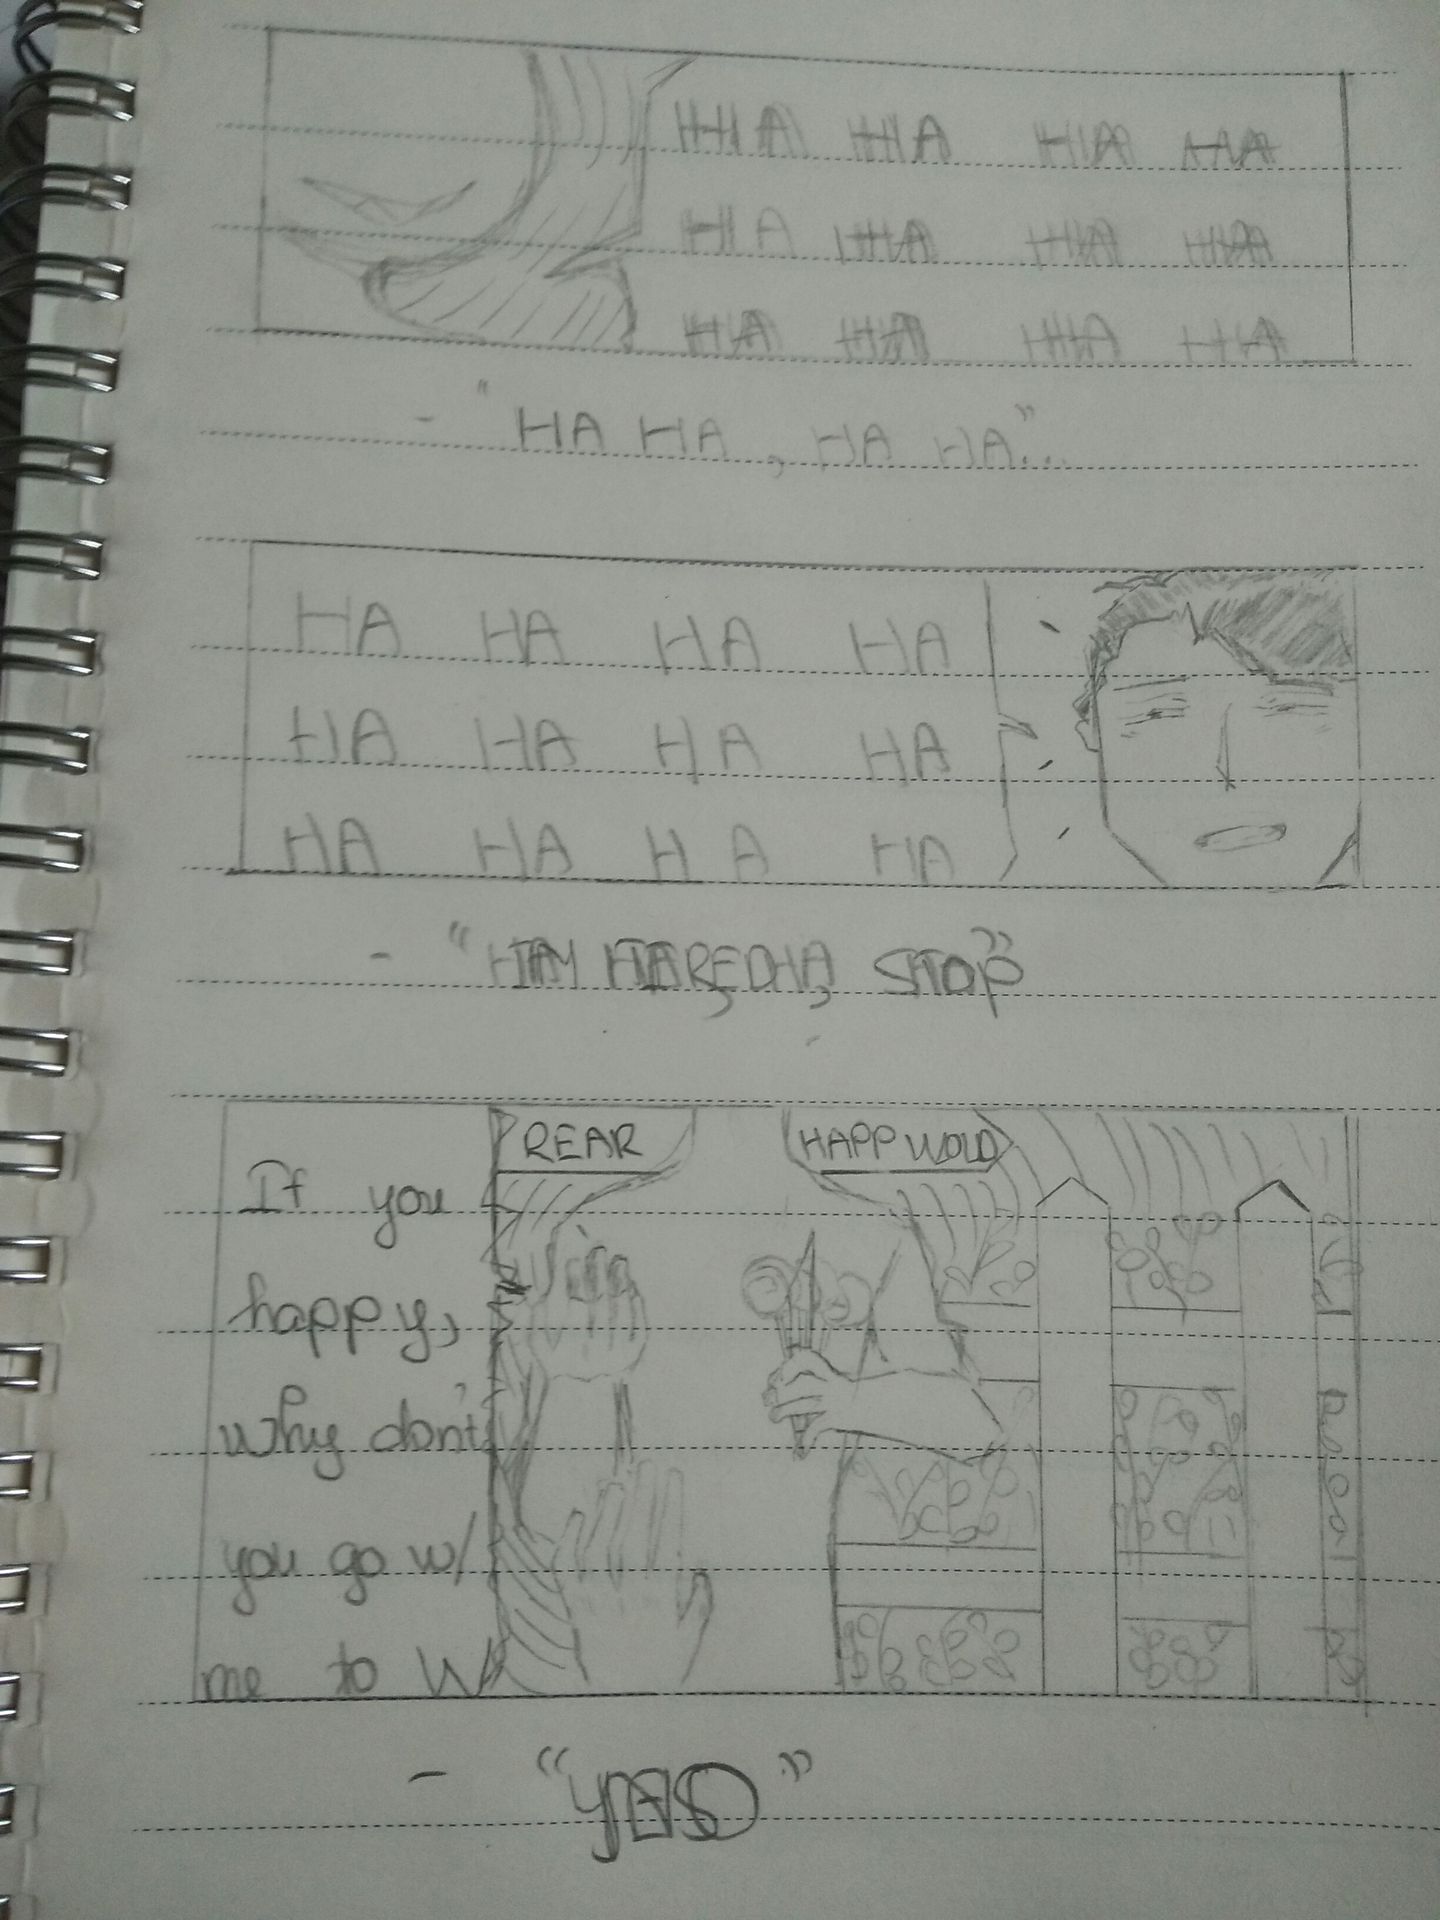 HA HA HA HA
HA HA HA HA
HA HA HA HA
- "HA HA, HA HA..."
HA HA HA HA
HA HA HA HA
HA HA HA HA
STOP"
REAR
HAPP WOLD
If you
happy,
why don't
you go w/
me to W